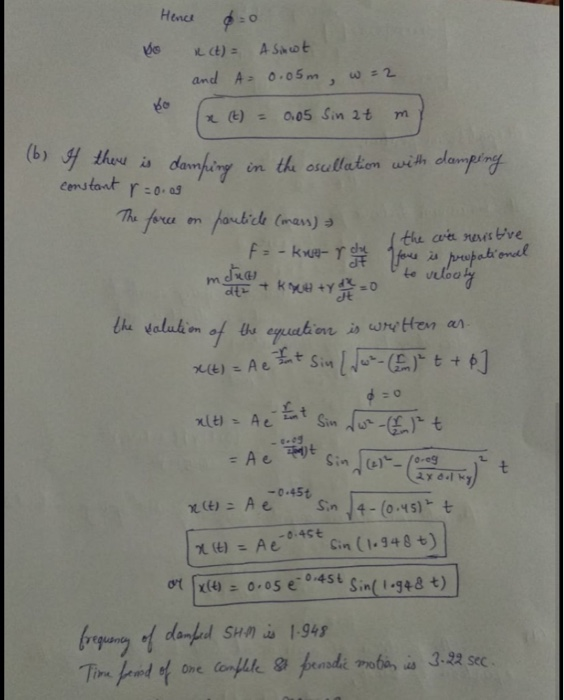 Hence ϕ=0
so x(t) = A Sinωt
and A = 0.05m , ω = 2
so x (t) = 0.05 Sin 2t m
(b) If there is damping in the oscillation with damping
constant r = 0.09
The force on particle (mass) ⇒
F = - kx(t) - r dx/dt { the air resistive
force is propational
to velocity
m d²x(t)/dt² + k x(t) + r dx/dt = 0
the solution of the equation is written as
x(t) = A e^(-r/2m t) Sin [ √(ω² - (r/2m)²) t + ϕ ]
ϕ = 0
x(t) = A e^(-r/2m t) Sin √(ω² - (r/2m)²) t
= A e^(-0.09/2(0.1) t) Sin √((2)² - (0.09/(2 x 0.1 kg))²) t
x(t) = A e^(-0.45t) Sin √(4 - (0.45)²) t
x(t) = A e^(-0.45t) Sin (1.948 t)
or x(t) = 0.05 e^(-0.45t) Sin(1.948 t)
frequency of damped SHM is 1.948
Time period of one complete periodic motion is 3.22 sec.